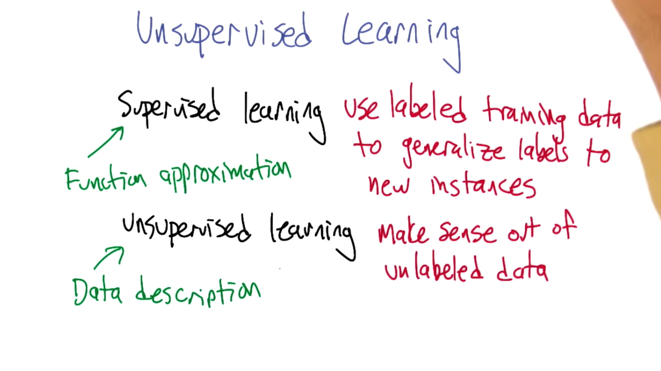 Unsupervised Learning
Supervised learning use labeled training data
to generalize labels to
Function approximation new instances
unsupervised learning make sense out of
unlabeled data
Data description